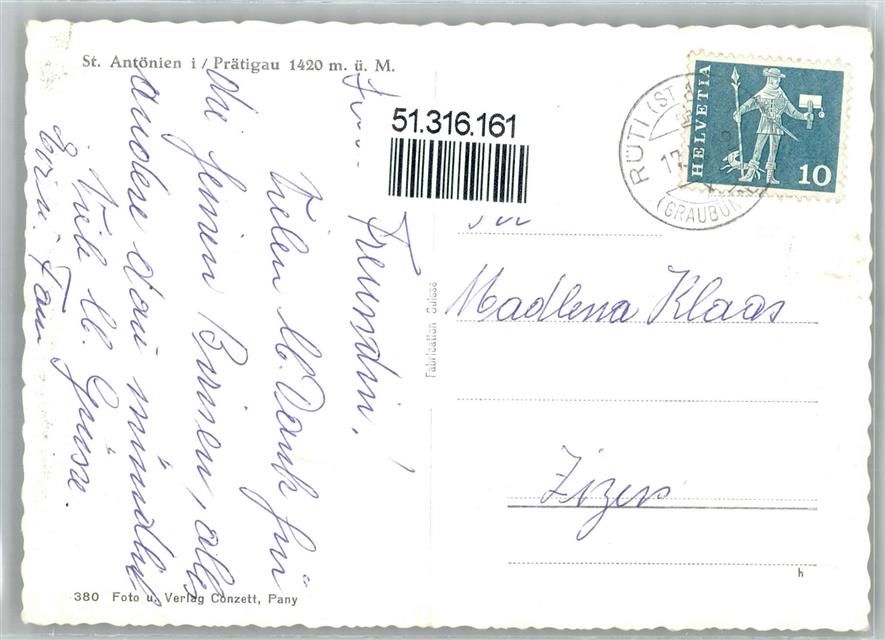 St. Antönien i / Prätigau 1420 m. ü. M.
51.316.161
HELVETIA
10
RÜTI (ST. A
17.
(GRAUBÜ
Freundin!
Vielen lb. Dank für
die feinen Birnen, alles
andere dann mündlich
Viele lb. Grüsse.
Fam
Fabrication Suisse
Madlena Klaas
Zizers
h
380 Foto u. Verlag Conzett, Pany